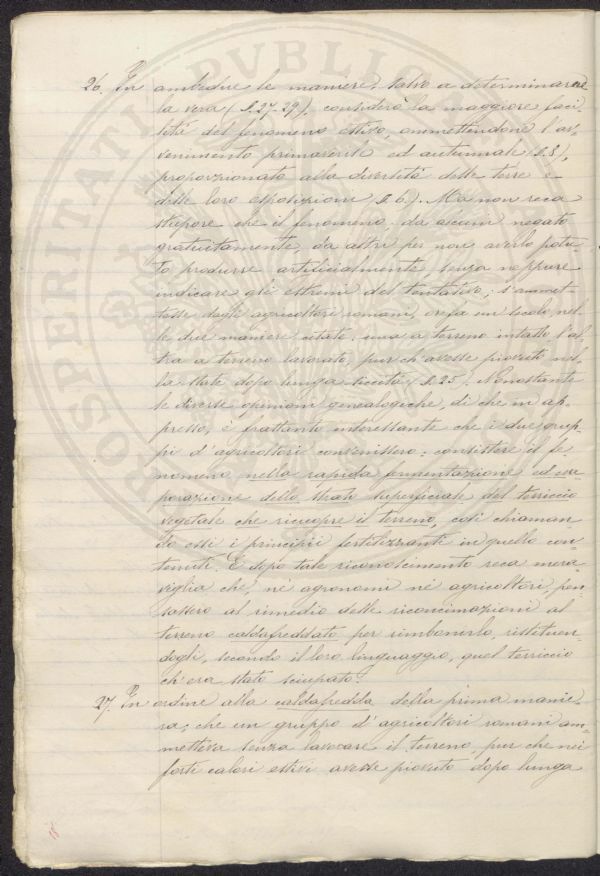 PROSPERITATI PVBLICAE
26. In ambedue le maniere, salvo a determinarne
la vera (§. 27-29), considerò la maggiore faci-
lità del fenomeno estivo, ammettendone l'av-
venimento primaverile ed autunnale (§. 8),
proporzionato alla diversità delle terre e
delle loro esposizioni (§. 6). Ma non reca
stupore che il fenomeno, da alcuni negato
gratuitamente, da altri per non averlo potu-
to produrre artificialmente, senza neppure
indicare gli estremi del tentativo; s'ammet-
tesse dagli agricoltori romani, or fa un secolo nel-
le due maniere citate: una a terreno intatto l'al-
tra a terreno lavorato, pur ch'avesse piovuto nel-
la state dopo lunga siccità (§. 25). Nonostante
le diverse opinioni genealogiche, di che in ap-
presso, è frattanto interessante che i due grup-
pi d'agricoltori convenissero: consistere il fe-
nomeno nella rapida fermentazione ed eva-
porazione dello strato superficiale del terriccio
vegetale che ricuopre il terreno, così chiaman-
do essi i principii fertilizzanti in quello con-
tenuti. E dopo tale riconoscimento reca mera-
viglia che, nè agronomi nè agricoltori pen-
sassero al rimedio delle riconcimazioni al
terreno caldafreddato per rimbonirlo, restituen-
dogli, secondo il loro linguaggio, quel terriccio
ch'era stato sciupato.
27. In ordine alla caldafredda della prima manie-
ra; che un gruppo d'agricoltori romani am-
metteva senza lavorare il terreno, pur che nei
forti calori estivi avesse piovuto dopo lunga